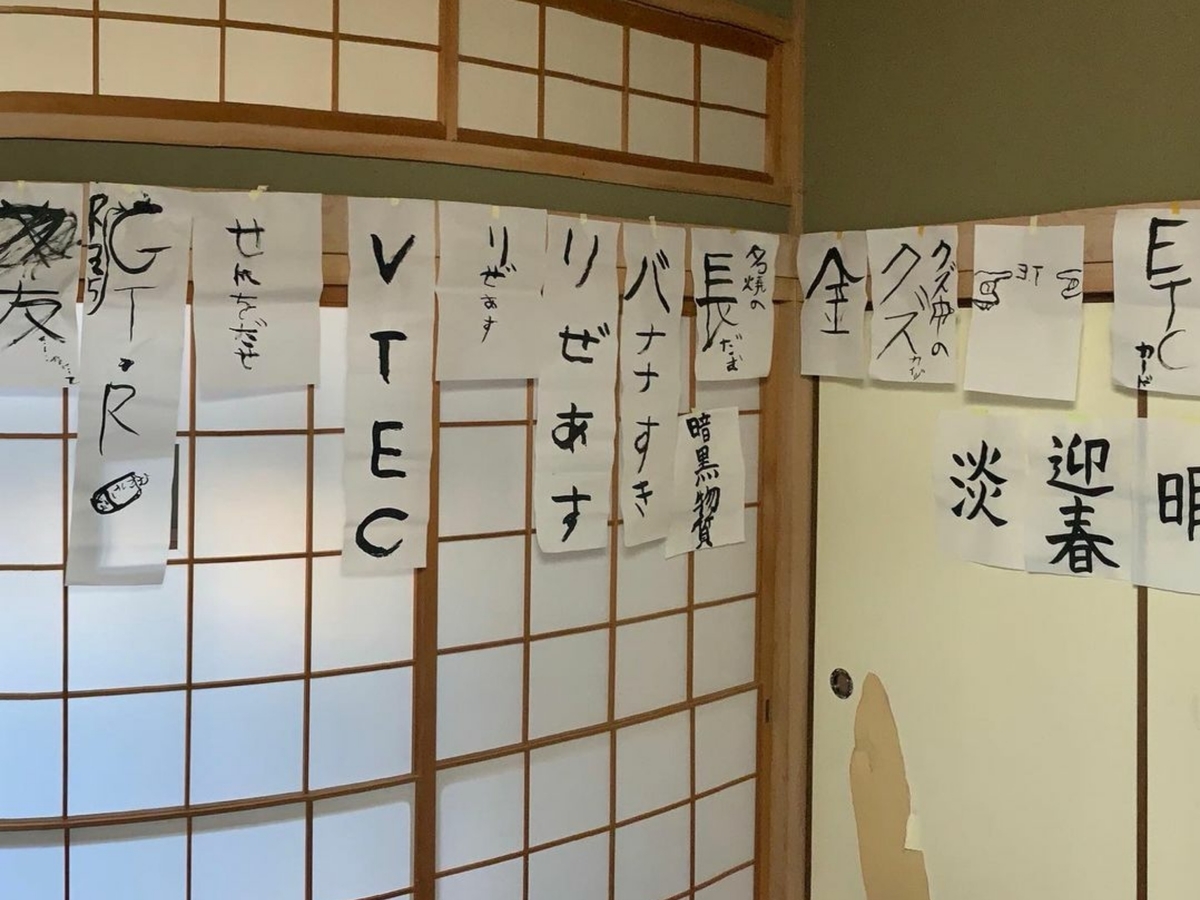 友
R35
GT・R
せれをだせ
VTEC
りぜあす
りぜあす
バナナすき
名焼の
長だむ
暗黒物質
金
クズ中の
クズ
ETC
カード
淡
迎春
明